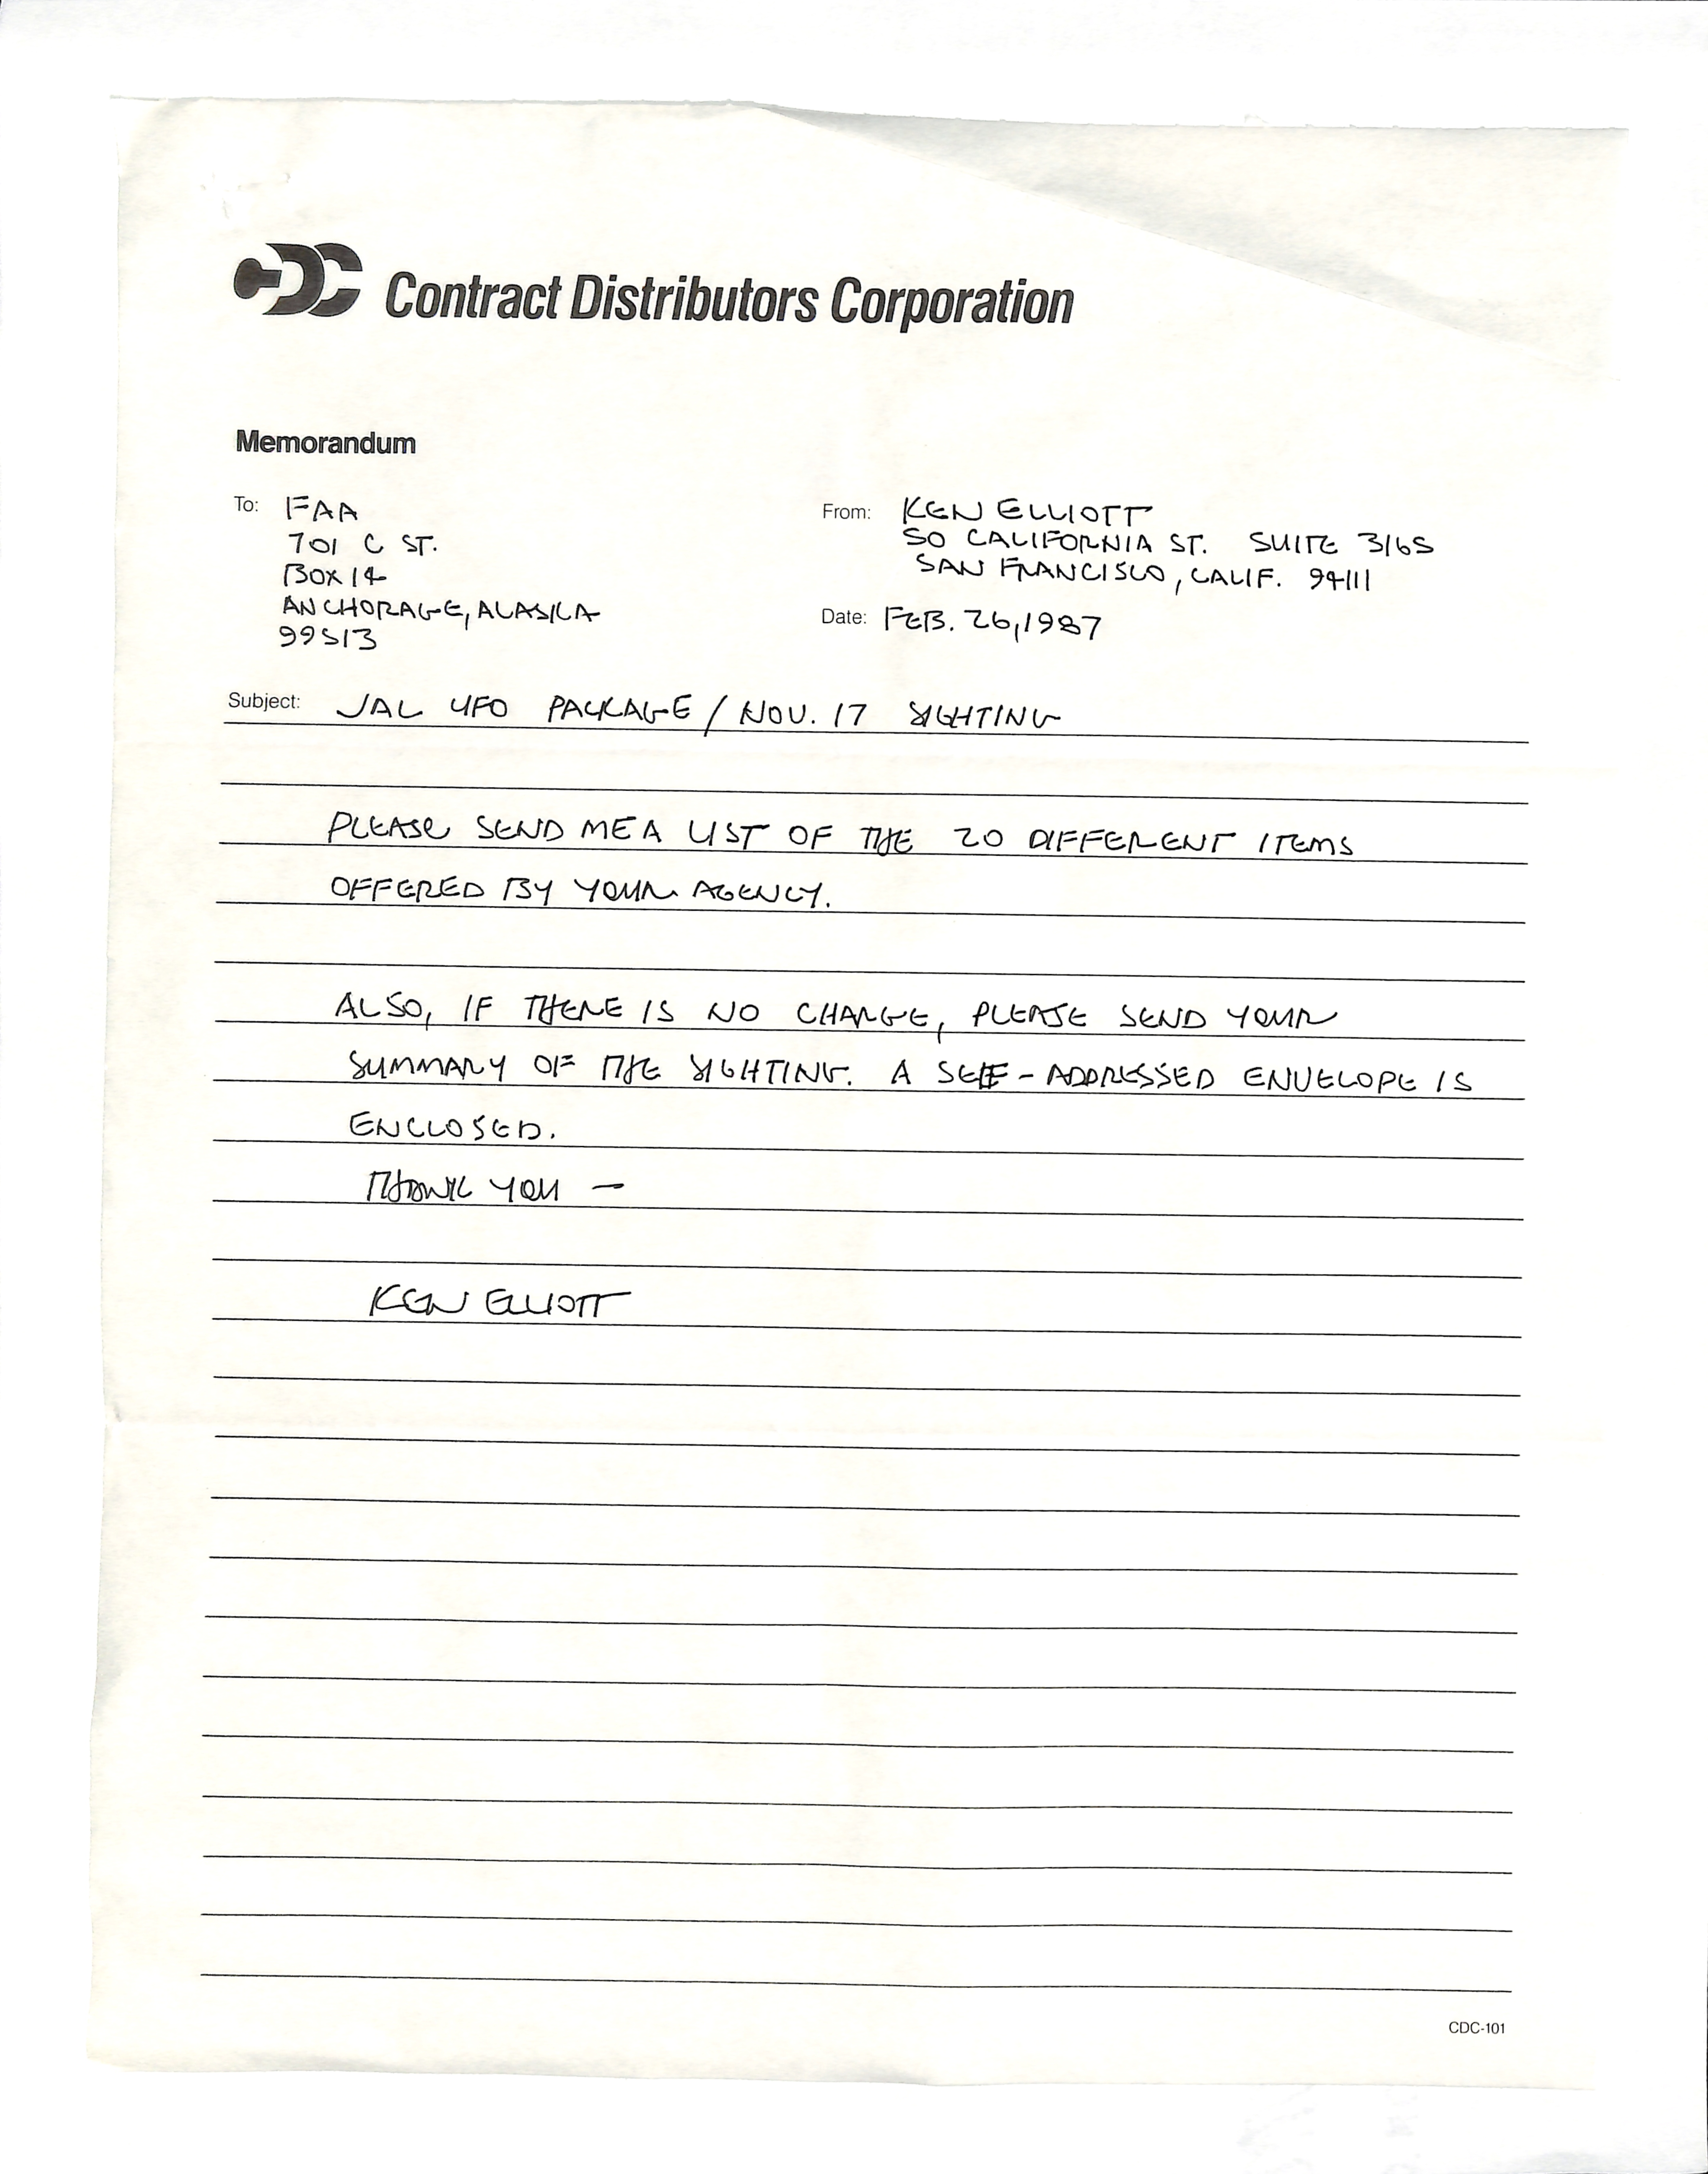 CDC Contract Distributors Corporation
Memorandum
To: FAA
701 C ST.
BOX 14
ANCHORAGE, ALASKA
99513
From: KEN ELLIOTT
50 CALIFORNIA ST. SUITE 3165
SAN FRANCISCO, CALIF. 94111
Date: FEB. 26, 1987
Subject: JAL UFO PACKAGE / NOV. 17 SIGHTING
PLEASE SEND ME A LIST OF THE 20 DIFFERENT ITEMS
OFFERED BY YOUR AGENCY.
ALSO, IF THERE IS NO CHARGE, PLEASE SEND YOUR
SUMMARY OF THE SIGHTING. A SELF-ADDRESSED ENVELOPE IS
ENCLOSED.
THANK YOU —
KEN ELLIOTT
CDC-101